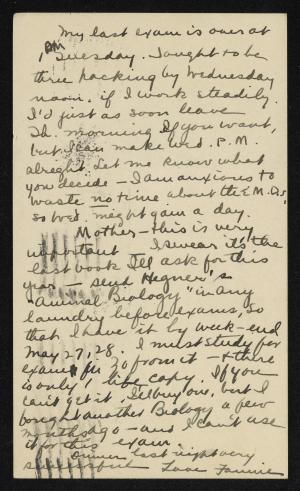 My last exam is over at
1 PM Tuesday. I ought to be
thru packing by Wednesday
noon, if I work steadily.
I'd just as soon leave
Th. morning if you want,
but I can make Wed. P.M.
alright. Let me know what
you decide - I am anxious to
waste no time about the M. Drs
so Wed. might gain a day.
Mother - this is very
important - I swear it's the
last book I'll ask for this
year - send Hegner's
"Animal Biology" in any
laundry before exams, so
that I have it by week-end
May 27, 28. I must study for
exam for Zo from it - & there
is only 1 libe copy. If you
can't get it, I'll buy one, but I
bought another Biology a few
months ago - and I can't use
it for this exam.
Dinner last night very
successful Love Fannie